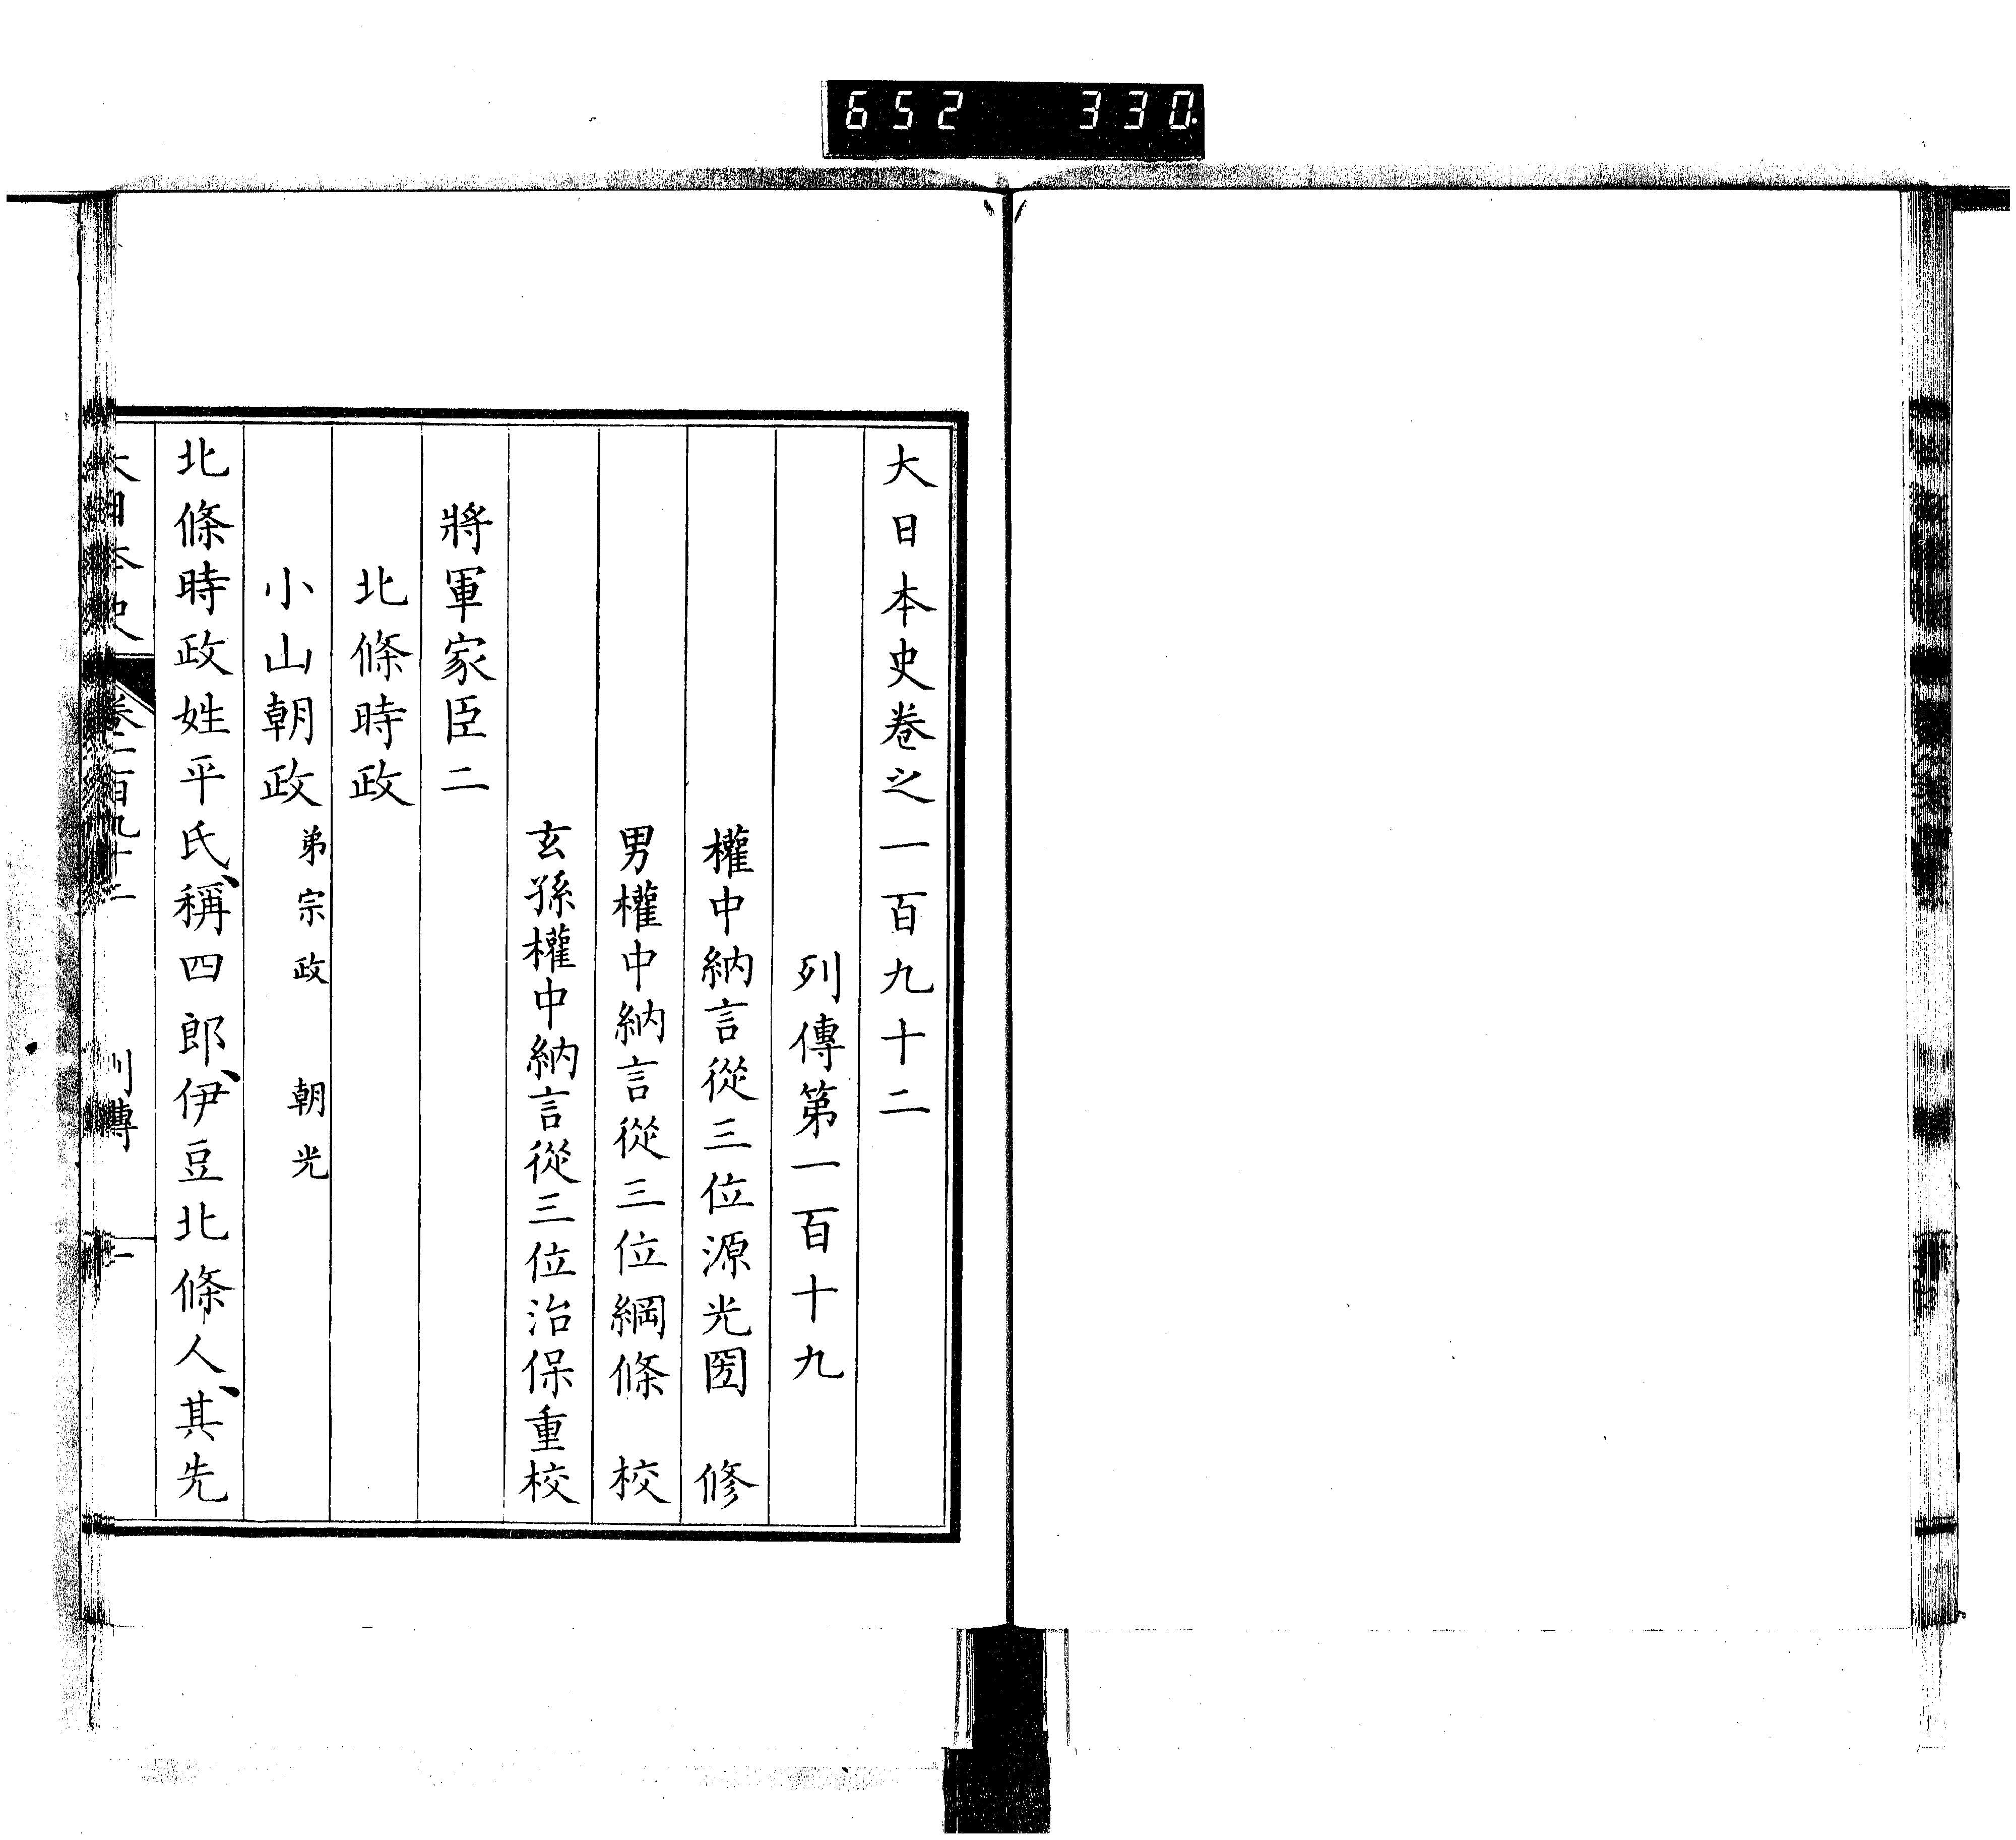 652 330
大日本史卷之一百九十二
列傳第一百十九
權中納言從三位源光圀 修
男權中納言從三位綱條 校
玄孫權中納言從三位治保重校
將軍家臣二
北條時政
小山朝政 弟宗政 朝光
北條時政姓平氏、稱四郎、伊豆北條人、其先
大日本史 卷一百九十二 列傳 一